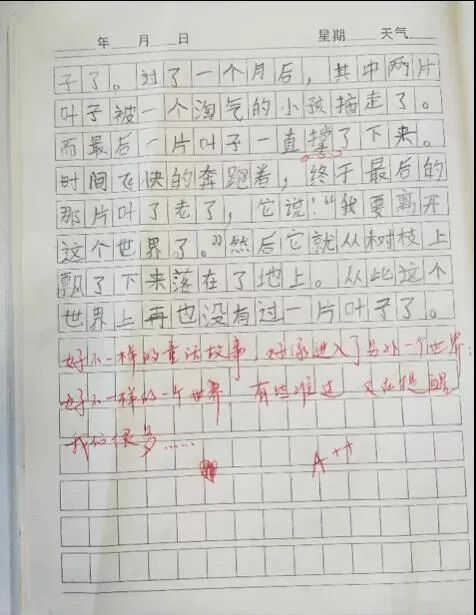 年 月 日 星期 天气
子了。过了一个月后，其中两片
叶子被一个淘气的小孩摘走了。
而最后一片叶子一直撑了下来。
时间飞快的奔跑着，终于最后的
那片叶了老了，它说：“我要离开
这个世界了。”然后它就从树枝上
飘了下来落在了地上。从此这个
世界上再也没有过一片叶子了。
好不一样的童话故事，好像进入了另外一个世界；
好不一样的一个世界，有些难过，又在提醒
我们很多……
A++